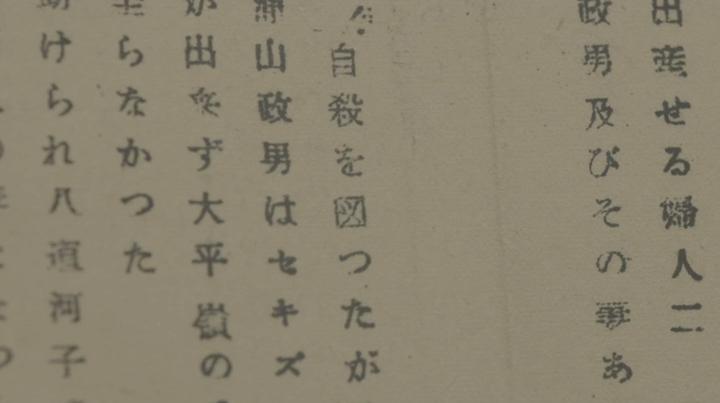 出産せる婦人二
政男及びその事あ
自殺を図つたが
山政男はセキズ
が出来ず大平嶺の
らなかつた
助けられ八道河子